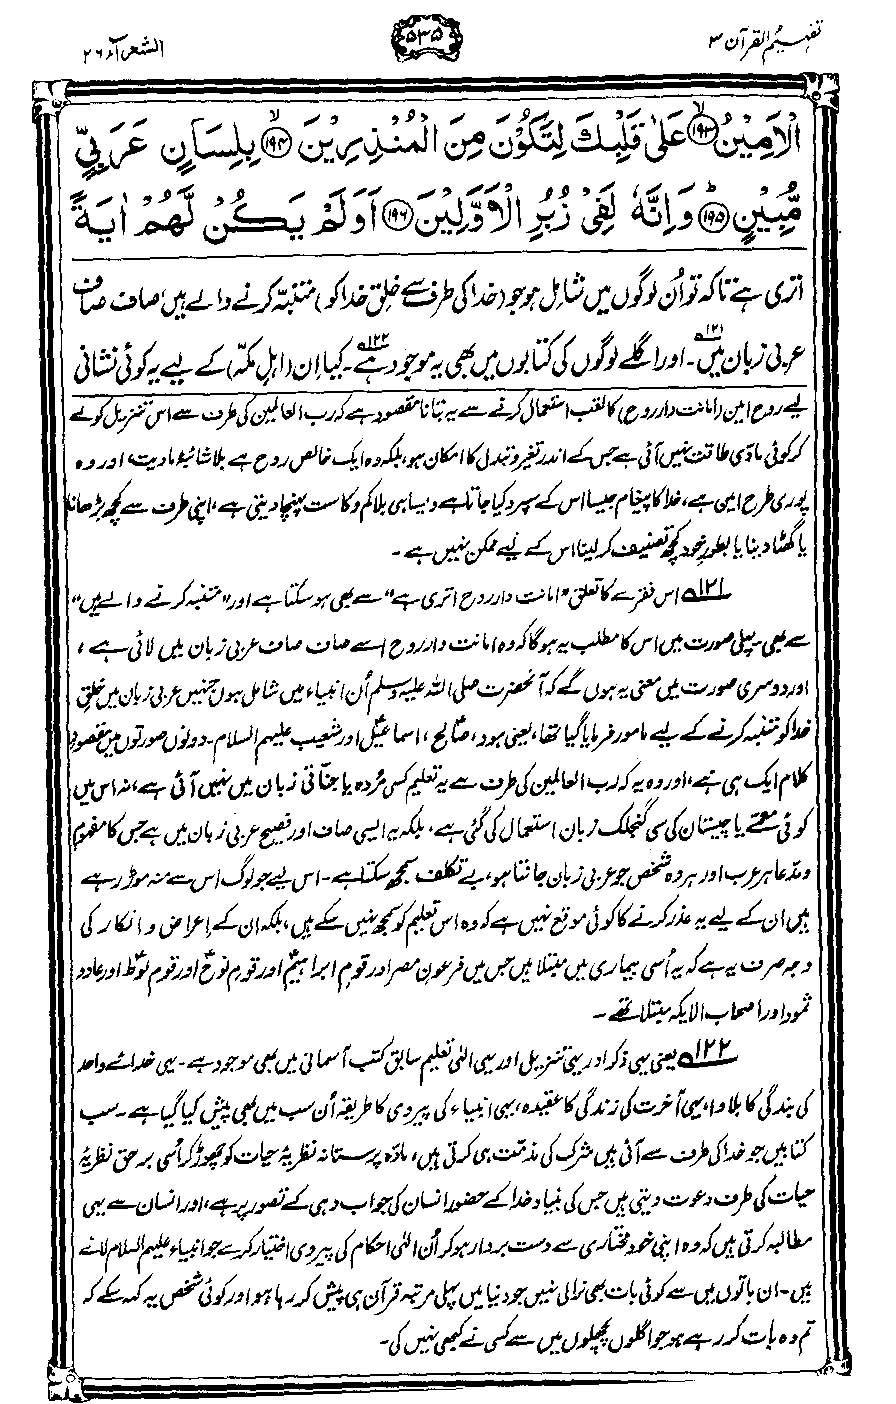 تفہیم القرآن ۳
۵۳۵
الشعرآء ۲۶
الْاَمِیْنُ ﴿۱۹۳﴾ عَلٰی قَلْبِكَ لِتَكُوْنَ مِنَ الْمُنْذِرِیْنَ ﴿۱۹۴﴾ بِلِسَانٍ عَرَبِیٍّ
مُّبِیْنٍ ﴿۱۹۵﴾ وَاِنَّهٗ لَفِیْ زُبُرِ الْاَوَّلِیْنَ ﴿۱۹۶﴾ اَوَلَمْ یَكُنْ لَّهُمْ اٰیَةً
اتری ہے تاکہ تو اُن لوگوں میں شامل ہو جو (خدا کی طرف سے خلقِ خدا کو) متنبّہ کرنے والے ہیں، صاف صاف
عربی زبان میں۱۲۱۔ اور اگلے لوگوں کی کتابوں میں بھی یہ موجود ہے۱۲۲۔ کیا اِن (اہلِ مکہ) کے لیے یہ کوئی نشانی
لیے روح امین (امانت دار روح) کا لقب استعمال کرنے سے یہ بتانا مقصود ہے کہ رب العالمین کی طرف سے اس تنزیل کو لے
کر کوئی مادّی طاقت نہیں آئی ہے جس کے اندر تغیر و تبدل کا امکان ہو، بلکہ وہ ایک خالص روح ہے بلا شائبۂ مادیت، اور وہ
پوری طرح امین ہے، خدا کا پیغام جیسا اس کے سپرد کیا جاتا ہے ویسا ہی بلا کم و کاست پہنچا دیتی ہے، اپنی طرف سے کچھ بڑھانا
یا گھٹا دینا یا بطورِ خود کچھ تصنیف کر لینا اس کے لیے ممکن نہیں ہے۔
۱۲۱ اس فقرے کا تعلق ”امانت دار روح اتری ہے“ سے بھی ہو سکتا ہے اور ”متنبہ کرنے والے ہیں“
سے بھی۔ پہلی صورت میں اس کا مطلب یہ ہوگا کہ وہ امانت دار روح اسے صاف صاف عربی زبان میں لائی ہے،
اور دوسری صورت میں معنی یہ ہوں گے کہ آنحضرت صلی اللہ علیہ وسلم اُن انبیاء میں شامل ہوں جنہیں عربی زبان میں خلقِ
خدا کو متنبہ کرنے کے لیے مامور فرمایا گیا تھا، یعنی ہود، صالح، اسماعیل اور شعیب علیہم السلام۔ دونوں صورتوں میں مقصودِ
کلام ایک ہی ہے، اور وہ یہ کہ رب العالمین کی طرف سے یہ تعلیم کسی مُردہ یا جناّتی زبان میں نہیں آئی ہے، نہ اس میں
کوئی معمّے یا چیستان کی سی گنجلک زبان استعمال کی گئی ہے، بلکہ یہ ایسی صاف اور فصیح عربی زبان میں ہے جس کا مفہوم
و مدّعا ہر عرب اور ہر وہ شخص جو عربی زبان جانتا ہو، بے تکلف سمجھ سکتا ہے۔ اس لیے جو لوگ اس سے منہ موڑ رہے
ہیں ان کے لیے یہ عذر کرنے کا کوئی موقع نہیں ہے کہ وہ اس تعلیم کو سمجھ نہیں سکے ہیں، بلکہ ان کے اعراض و انکار کی
وجہ صرف یہ ہے کہ یہ اُسی بیماری میں مبتلا ہیں جس میں فرعونِ مصر اور قومِ ابراہیمؑ اور قومِ نوحؑ اور قومِ لوطؑ اور عاد و
ثمود اور اصحاب الایکہ مبتلا تھے۔
۱۲۲ یعنی یہی ذکر اور یہی تنزیل اور یہی الٰہی تعلیم سابق کتب آسمانی میں بھی موجود ہے۔ یہی خدائے واحد
کی بندگی کا بلاوا، یہی آخرت کی زندگی کا عقیدہ، یہی انبیاء کی پیروی کا طریقہ اُن سب میں بھی پیش کیا گیا ہے۔ سب
کتابیں جو خدا کی طرف سے آئی ہیں شرک کی مذمّت ہی کرتی ہیں، مادّہ پرستانہ نظریۂ حیات کو چھوڑ کر اُسی برحق نظریۂ
حیات کی طرف دعوت دیتی ہیں جس کی بنیاد خدا کے حضور انسان کی جواب دہی کے تصور پر ہے، اور انسان سے یہی
مطالبہ کرتی ہیں کہ وہ اپنی خود مختاری سے دست بردار ہو کر اُن الٰہی احکام کی پیروی اختیار کرے جو انبیاء علیہم السلام لائے
ہیں۔ ان باتوں میں سے کوئی بات بھی نرالی نہیں جو دنیا میں پہلی مرتبہ قرآن ہی پیش کر رہا ہو اور کوئی شخص یہ کہہ سکے کہ
تم وہ بات کر رہے ہو جو اگلوں پچھلوں میں سے کسی نے کبھی نہیں کی۔